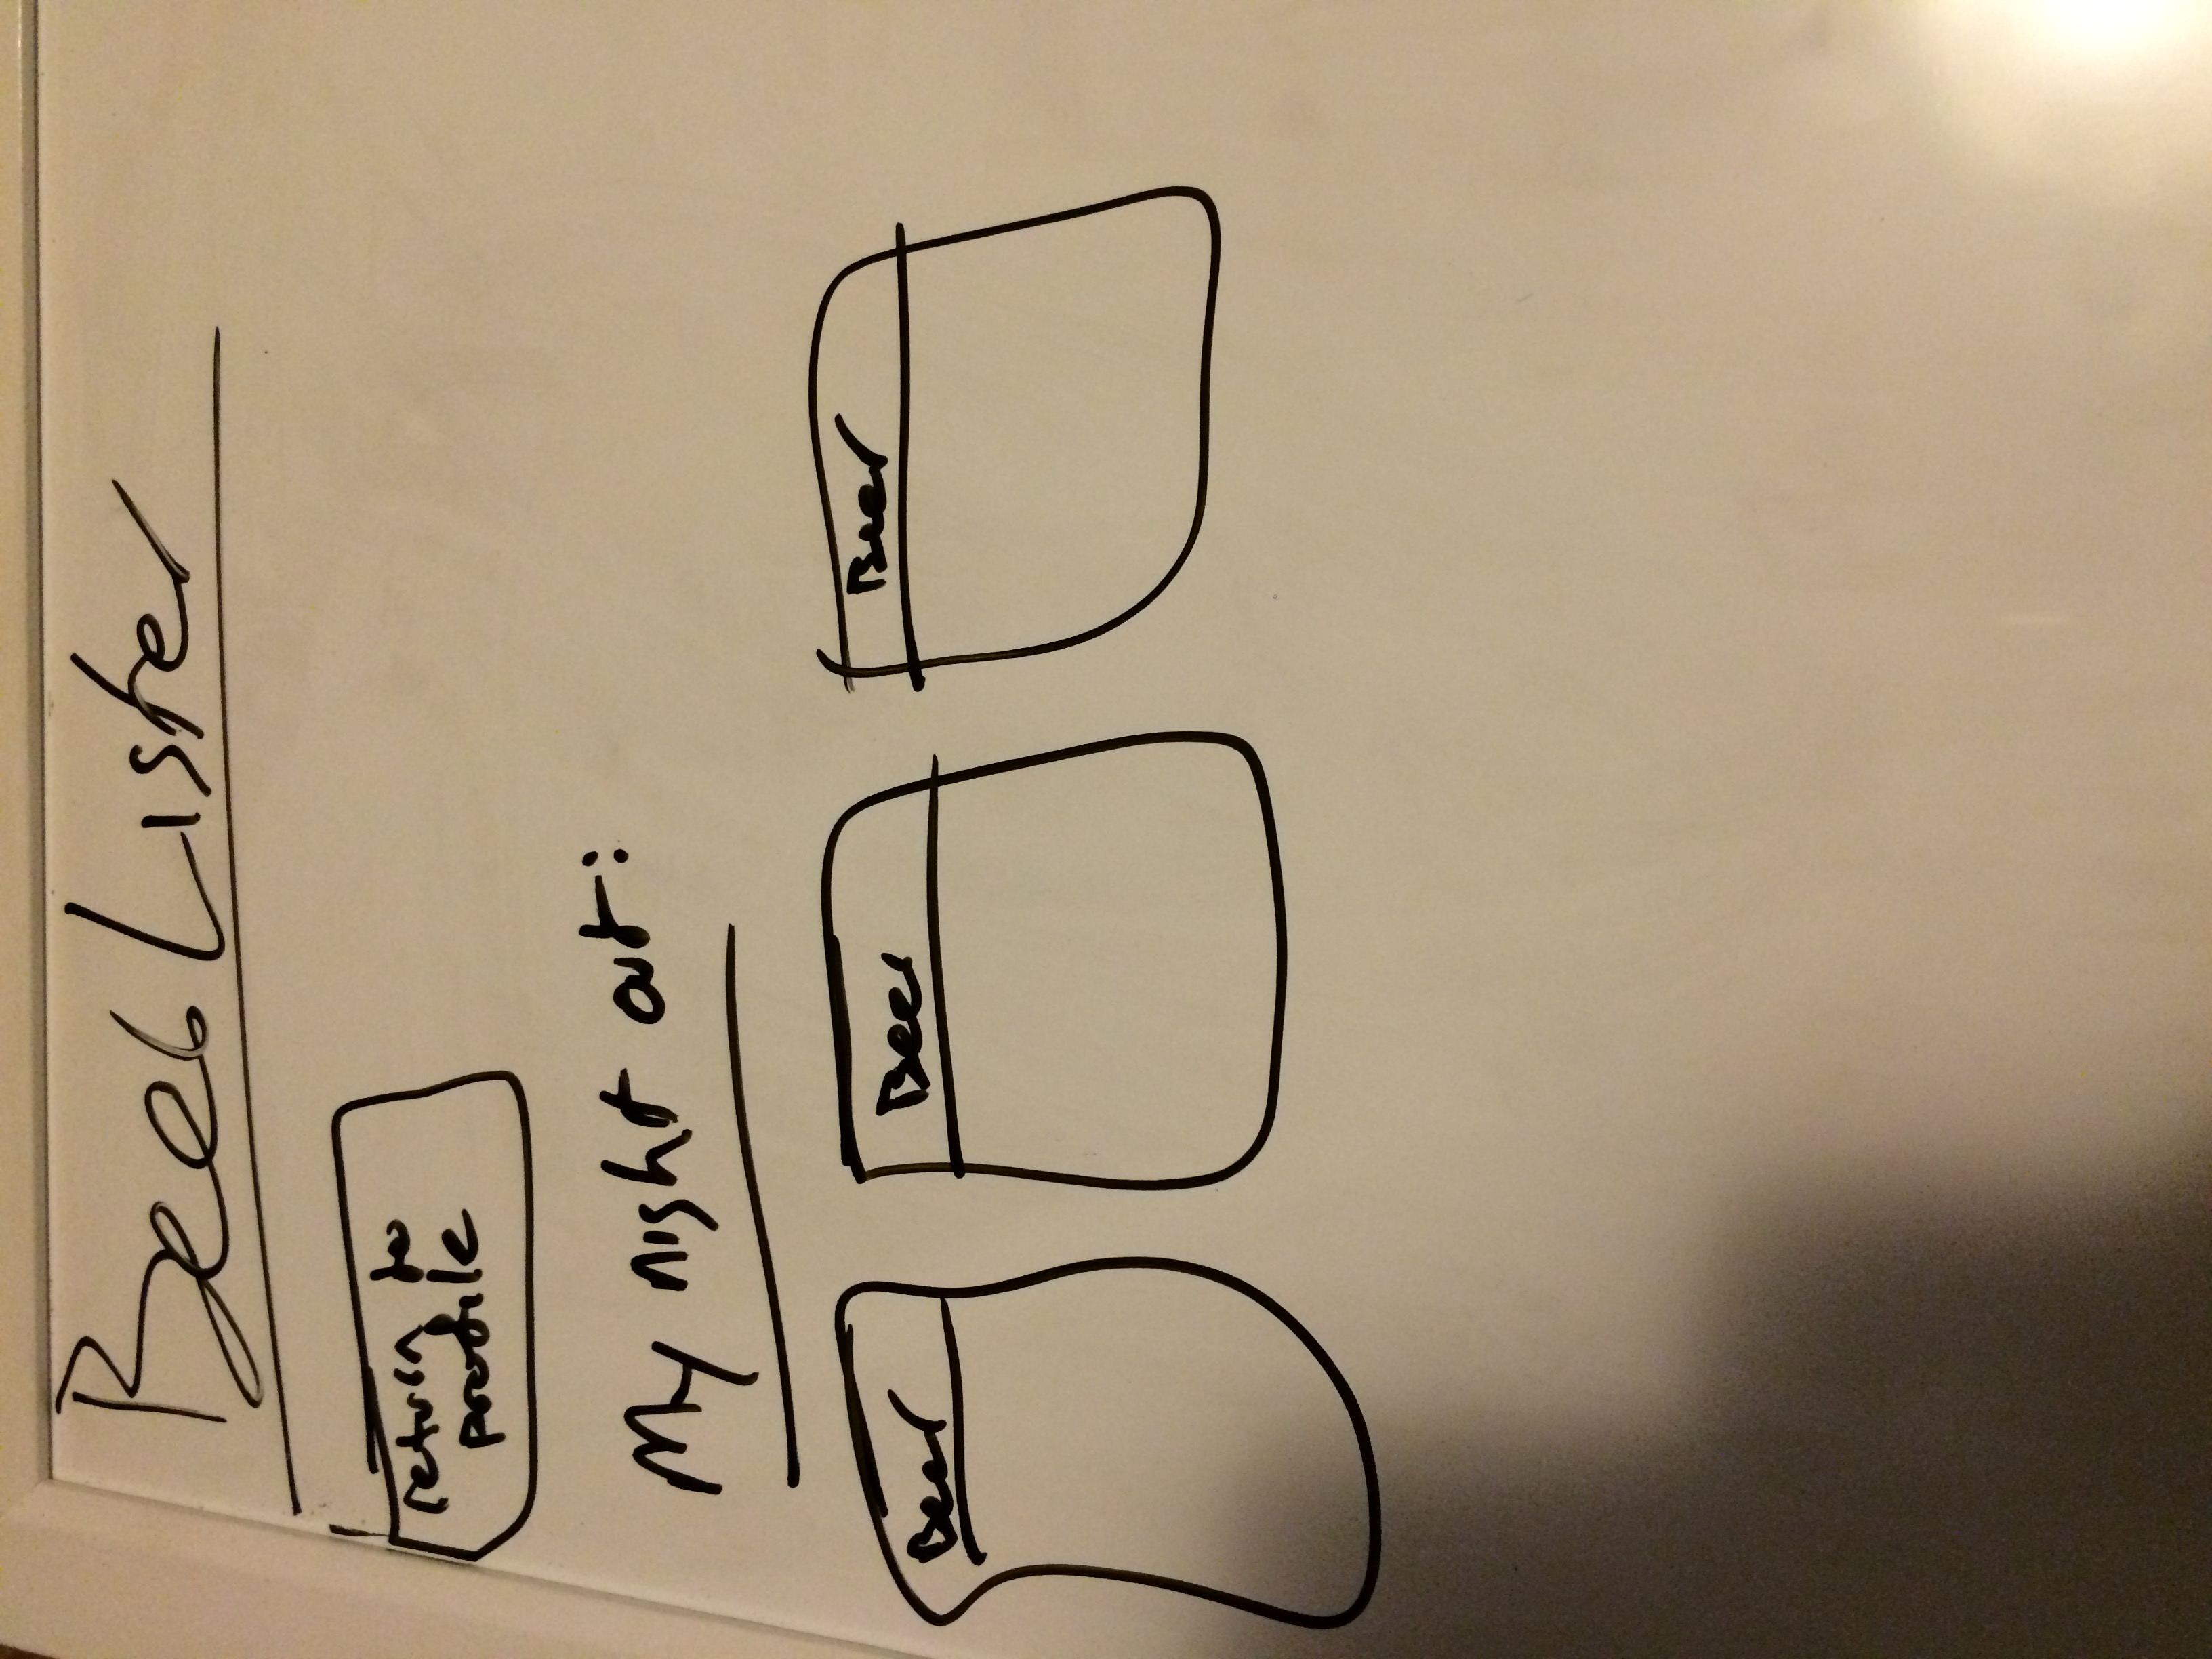 Beer Lister
return to
profile
My night out:
Beer
Beer
Beer